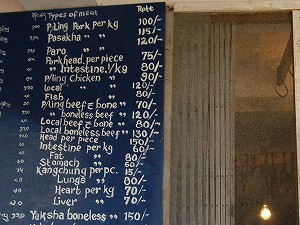 Types of meat Rate
P/Ling Pork per kg 100/-
Pasakha " " 115/-
Paro " " 120/-
Porkhead per piece 75/-
" Intestine 1/kg 80/-
P/ling Chicken " 90/-
Local " " 120/-
Fish " 80/-
P/ling beef & bone " 70/-
" boneless beef " 120/-
Local beef & bone " 80/-
Local boneless beef " 130/-
Head per piece 150/-
Intestine per kg 60/-
Fat " 80/-
Stomach " 60/-
Kangchung per pc. 15/-
Lungs " 80/-
Heart per kg 70/-
Liver " 70/-
Yaksha boneless " 150/-